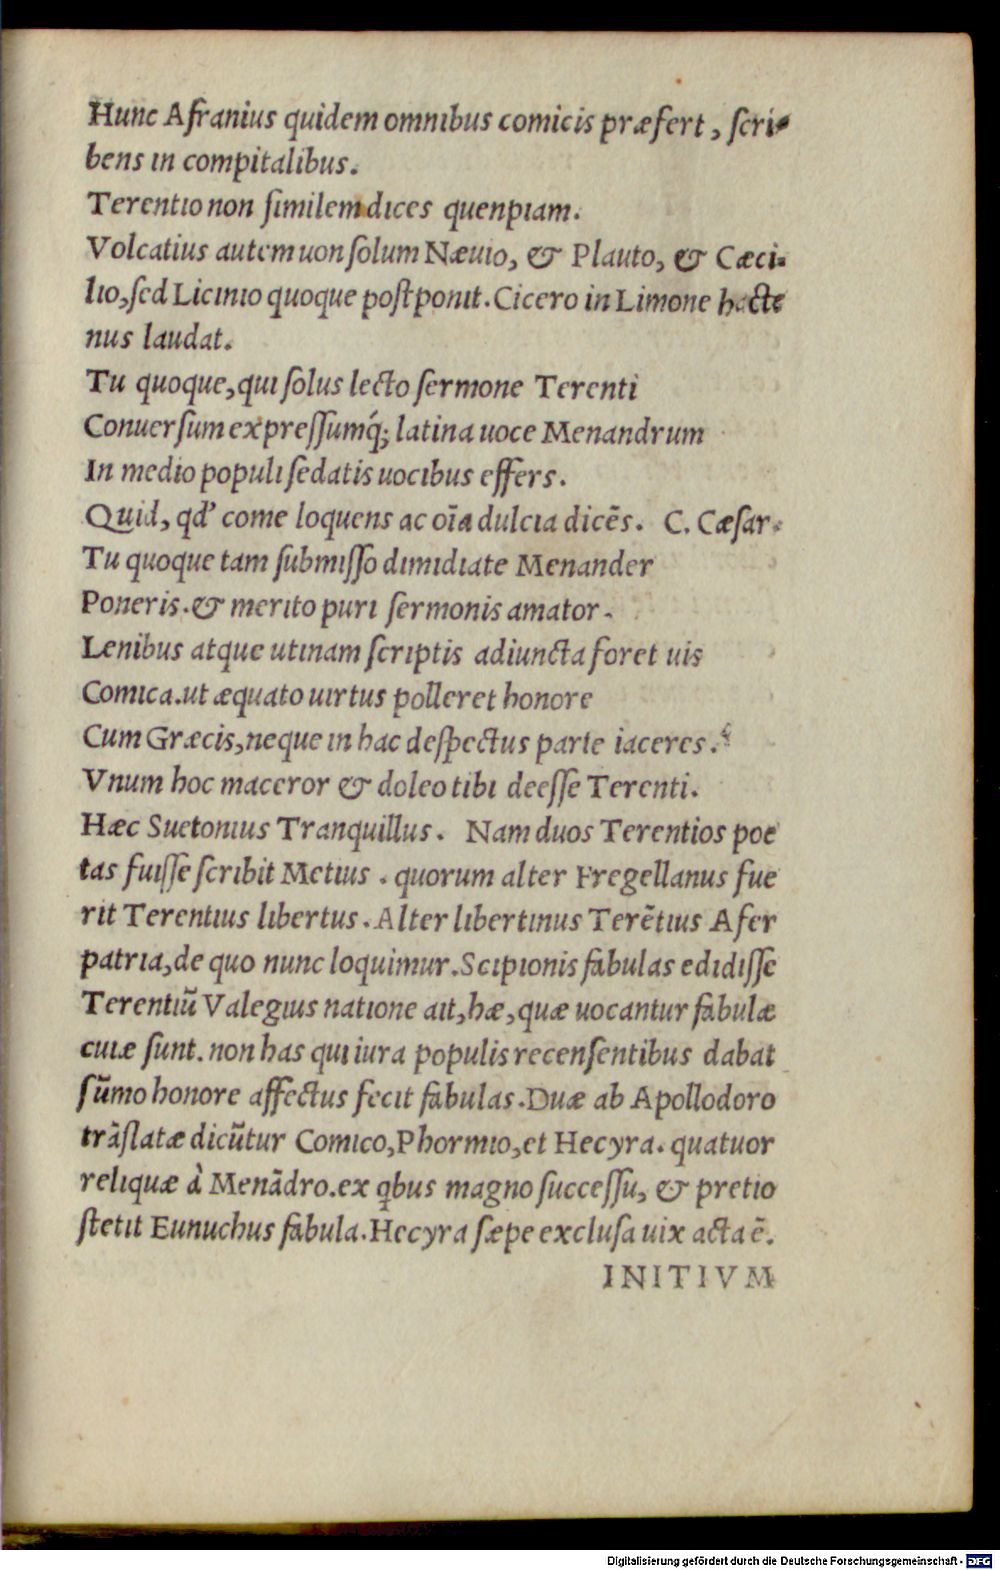 Hunc Afranius quidem omnibus comicis præfert, ſcri-
bens in compitalibus.
Terentio non ſimilem dices quenpiam.
Volcatius autem uon ſolum Næuio, & Plauto, & Cæci-
lio, ſed Licinio quoque poſtponit. Cicero in Limone hacte
nus laudat.
Tu quoque, qui ſolus lecto ſermone Terenti
Conuerſum expreſſumq́; latina uoce Menandrum
In medio populi ſedatis uocibus effers.
Quid, qd' come loquens ac oīa dulcia dicēs. C. Cæſar.
Tu quoque tam ſubmiſſo dimidiate Menander
Poneris. & merito puri ſermonis amator.
Lenibus atque utinam ſcriptis adiuncta foret uis
Comica. ut æquato uirtus polleret honore
Cum Græcis, neque in hac deſpectus parte iaceres.
Vnum hoc maceror & doleo tibi deeſſe Terenti.
Hæc Suetonius Tranquillus. Nam duos Terentios poe
tas fuiſſe ſcribit Metius. quorum alter Fregellanus fue
rit Terentius libertus. Alter libertinus Terētius Afer
patria, de quo nunc loquimur. Scipionis fabulas edidiſſe
Terentiū Valegius natione ait, hæ, quæ uocantur fabulæ
cuiæ ſunt. non has qui iura populis recenſentibus dabat
ſūmo honore affectus fecit fabulas. Duæ ab Apollodoro
trāſlatæ dicūtur Comico, Phormio, et Hecyra. quatuor
reliquæ à Menādro. ex qbus magno ſucceſſu, & pretio
ſtetit Eunuchus fabula. Hecyra ſæpe excluſa uix acta ē.
INITIVM
Digitalisierung gefördert durch die Deutsche Forschungsgemeinschaft - DFG